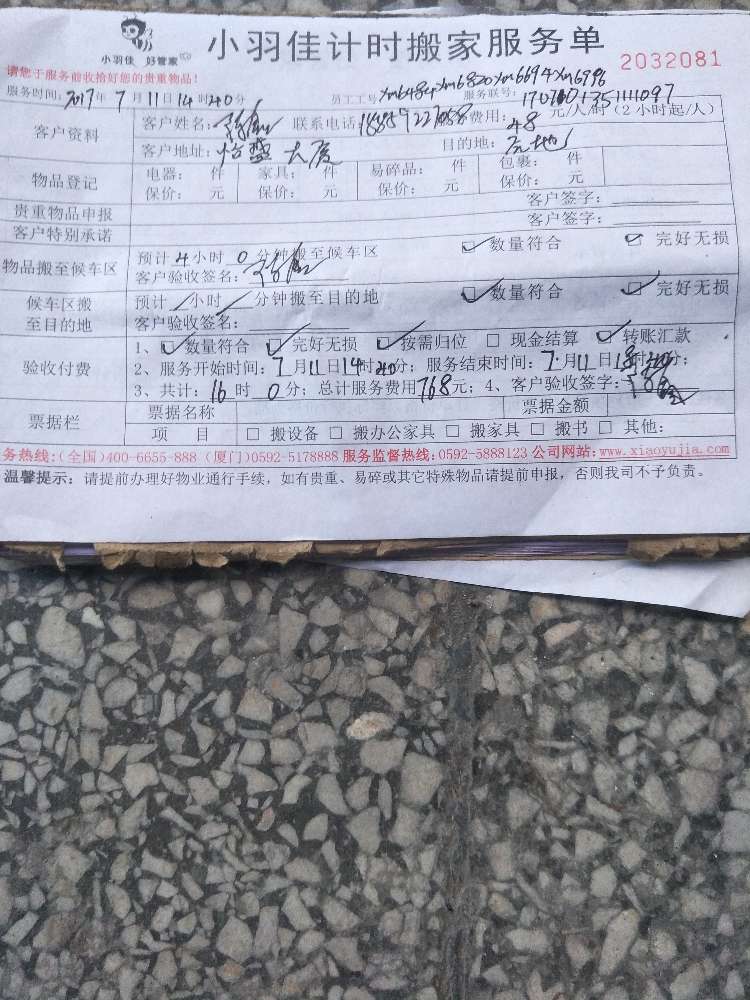 小羽佳 好管家
小羽佳计时搬家服务单
2032081
请您于服务前收拾好您的贵重物品！
服务时间：2017年7月11日14时40分 员工工号xm6484xm6820xm6694xm6996 服务联号：
客户资料 客户姓名： 联系电话 费用：48元/人/时（2小时起/人）
客户地址：怡盛大厦 目的地：原地
物品登记 电器： 件 家具： 件 易碎品： 件 包裹： 件
保价： 元 保价： 元 保价： 元 保价： 元
贵重物品申报 客户签字：
客户特别承诺 客户签字：
物品搬至候车区 预计4小时0分钟搬至候车区 ☑数量符合 ☑完好无损
客户验收签名：
候车区搬至目的地 预计/小时/分钟搬至目的地 ☑数量符合 ☑完好无损
客户验收签名：
验收付费 1、☑数量符合 ☑完好无损 ☑按需归位 □现金结算 ☑转账汇款
2、服务开始时间：7月11日14时40分；服务结束时间：7月11日18时
3、共计：16时0分；总计服务费用768元；4、客户验收签字：
票据栏 票据名称 票据金额
项 目 □搬设备 □搬办公家具 □搬家具 □搬书 □其他：
务热线：(全国)400-6655-888 (厦门)0592-5178888 服务监督热线：0592-5888123 公司网站：www.xiaoyujia.com
温馨提示：请提前办理好物业通行手续，如有贵重、易碎或其它特殊物品请提前申报，否则我司不予负责。